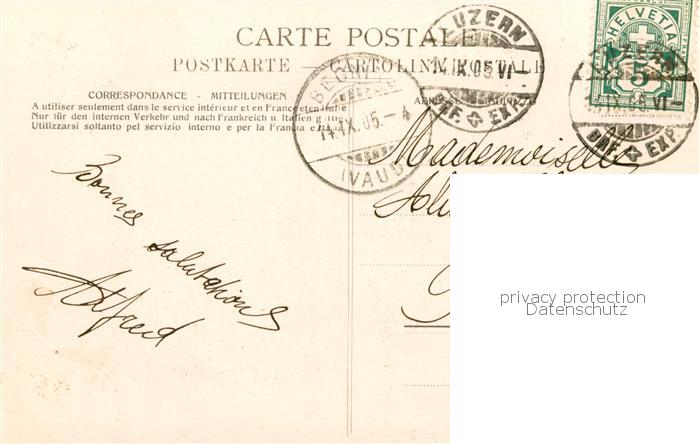 CARTE POSTALE
POSTKARTE — CARTOLINA POSTALE
CORRESPONDANCE - MITTEILUNGEN
A utiliser seulement dans le service intérieur et en France et en Italie
Nur für den internen Verkehr und nach Frankreich u. Italien
Utilizzarsi soltanto pel servizio interno e per la Francia e
ADRESSE INDIRIZZO
LUZERN
14.IX.05.VI
BRF. EXP.
14.IX.05.-4
(VAUD)
HELVETIA
5
IX.05.VI
BRF. EXP.
Mademoiselle
Bonnes
salutations
Alfred
privacy protection
Datenschutz